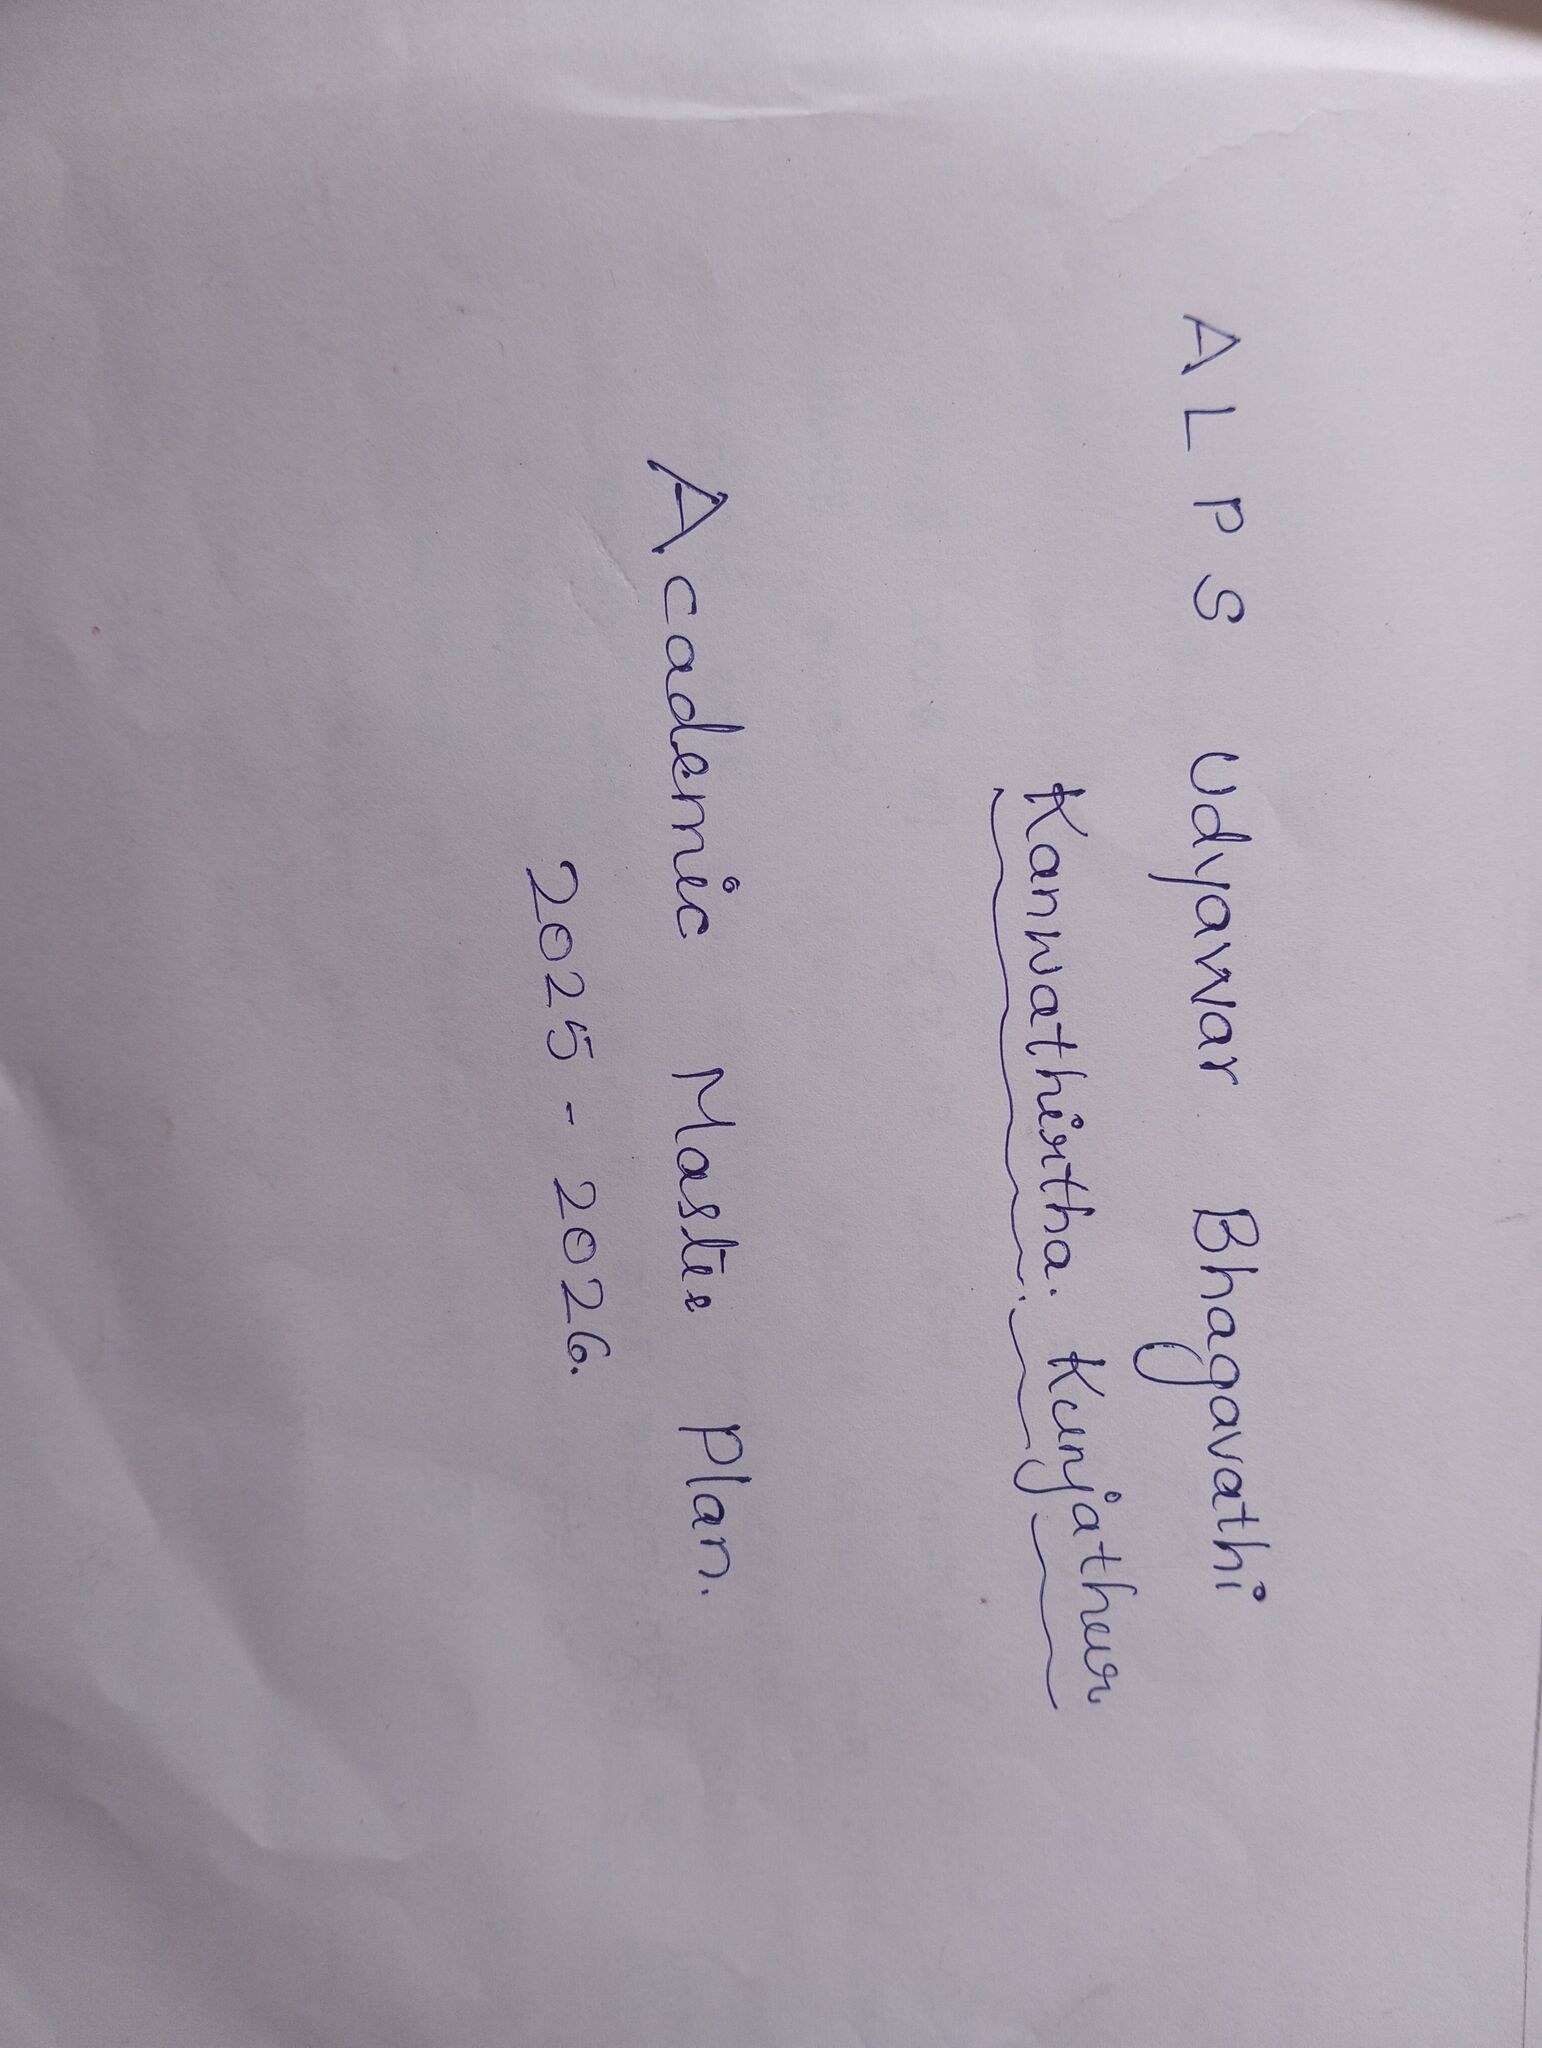 A L P S Udyawar Bhagavathi
Kanwathirtha. Kunjathur
Academic Master Plan.
2025 - 2026.